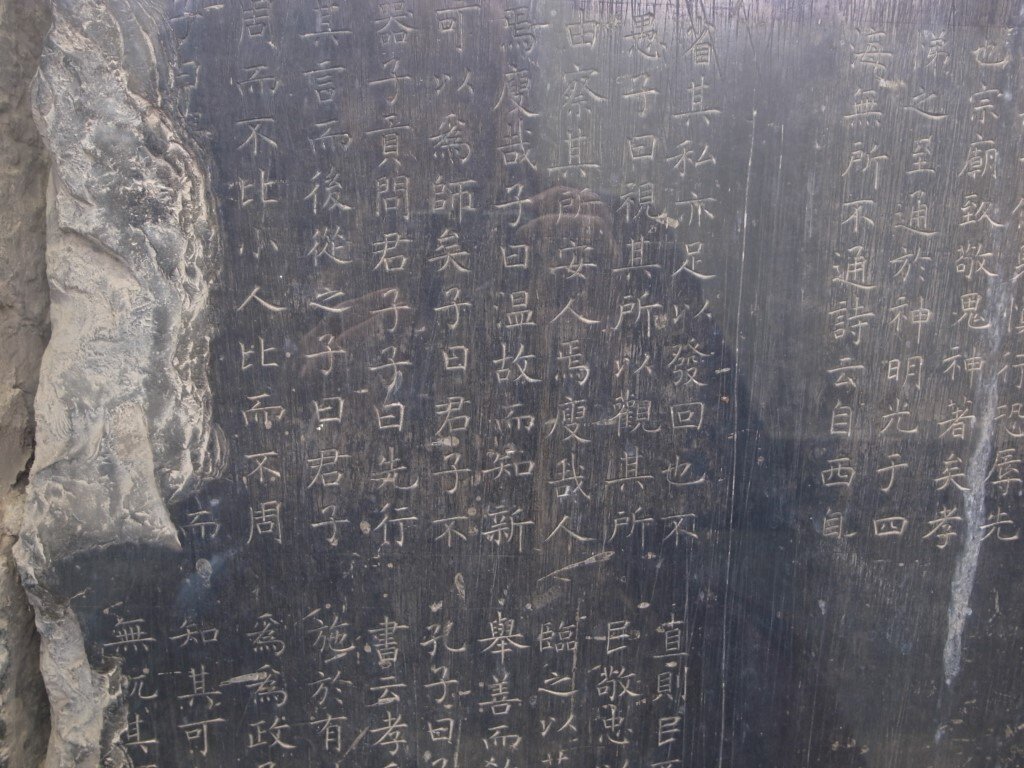 行恐辱先
也宗廟致敬鬼神著矣孝
弟之至通於神明光于四
海無所不通詩云自西自
省其私亦足以發回也不
愚子曰視其所以觀其所
由察其所安人焉廋哉人
焉廋哉子曰温故而知新
可以爲師矣子曰君子不
器子貢問君子子曰先行
其言而後從之子曰君子
周而不比小人比而不周
子曰
而
直則民
民敬忠
臨之以
舉善而
孔子曰
書云孝
施於有
爲爲政
知其可
無輗其